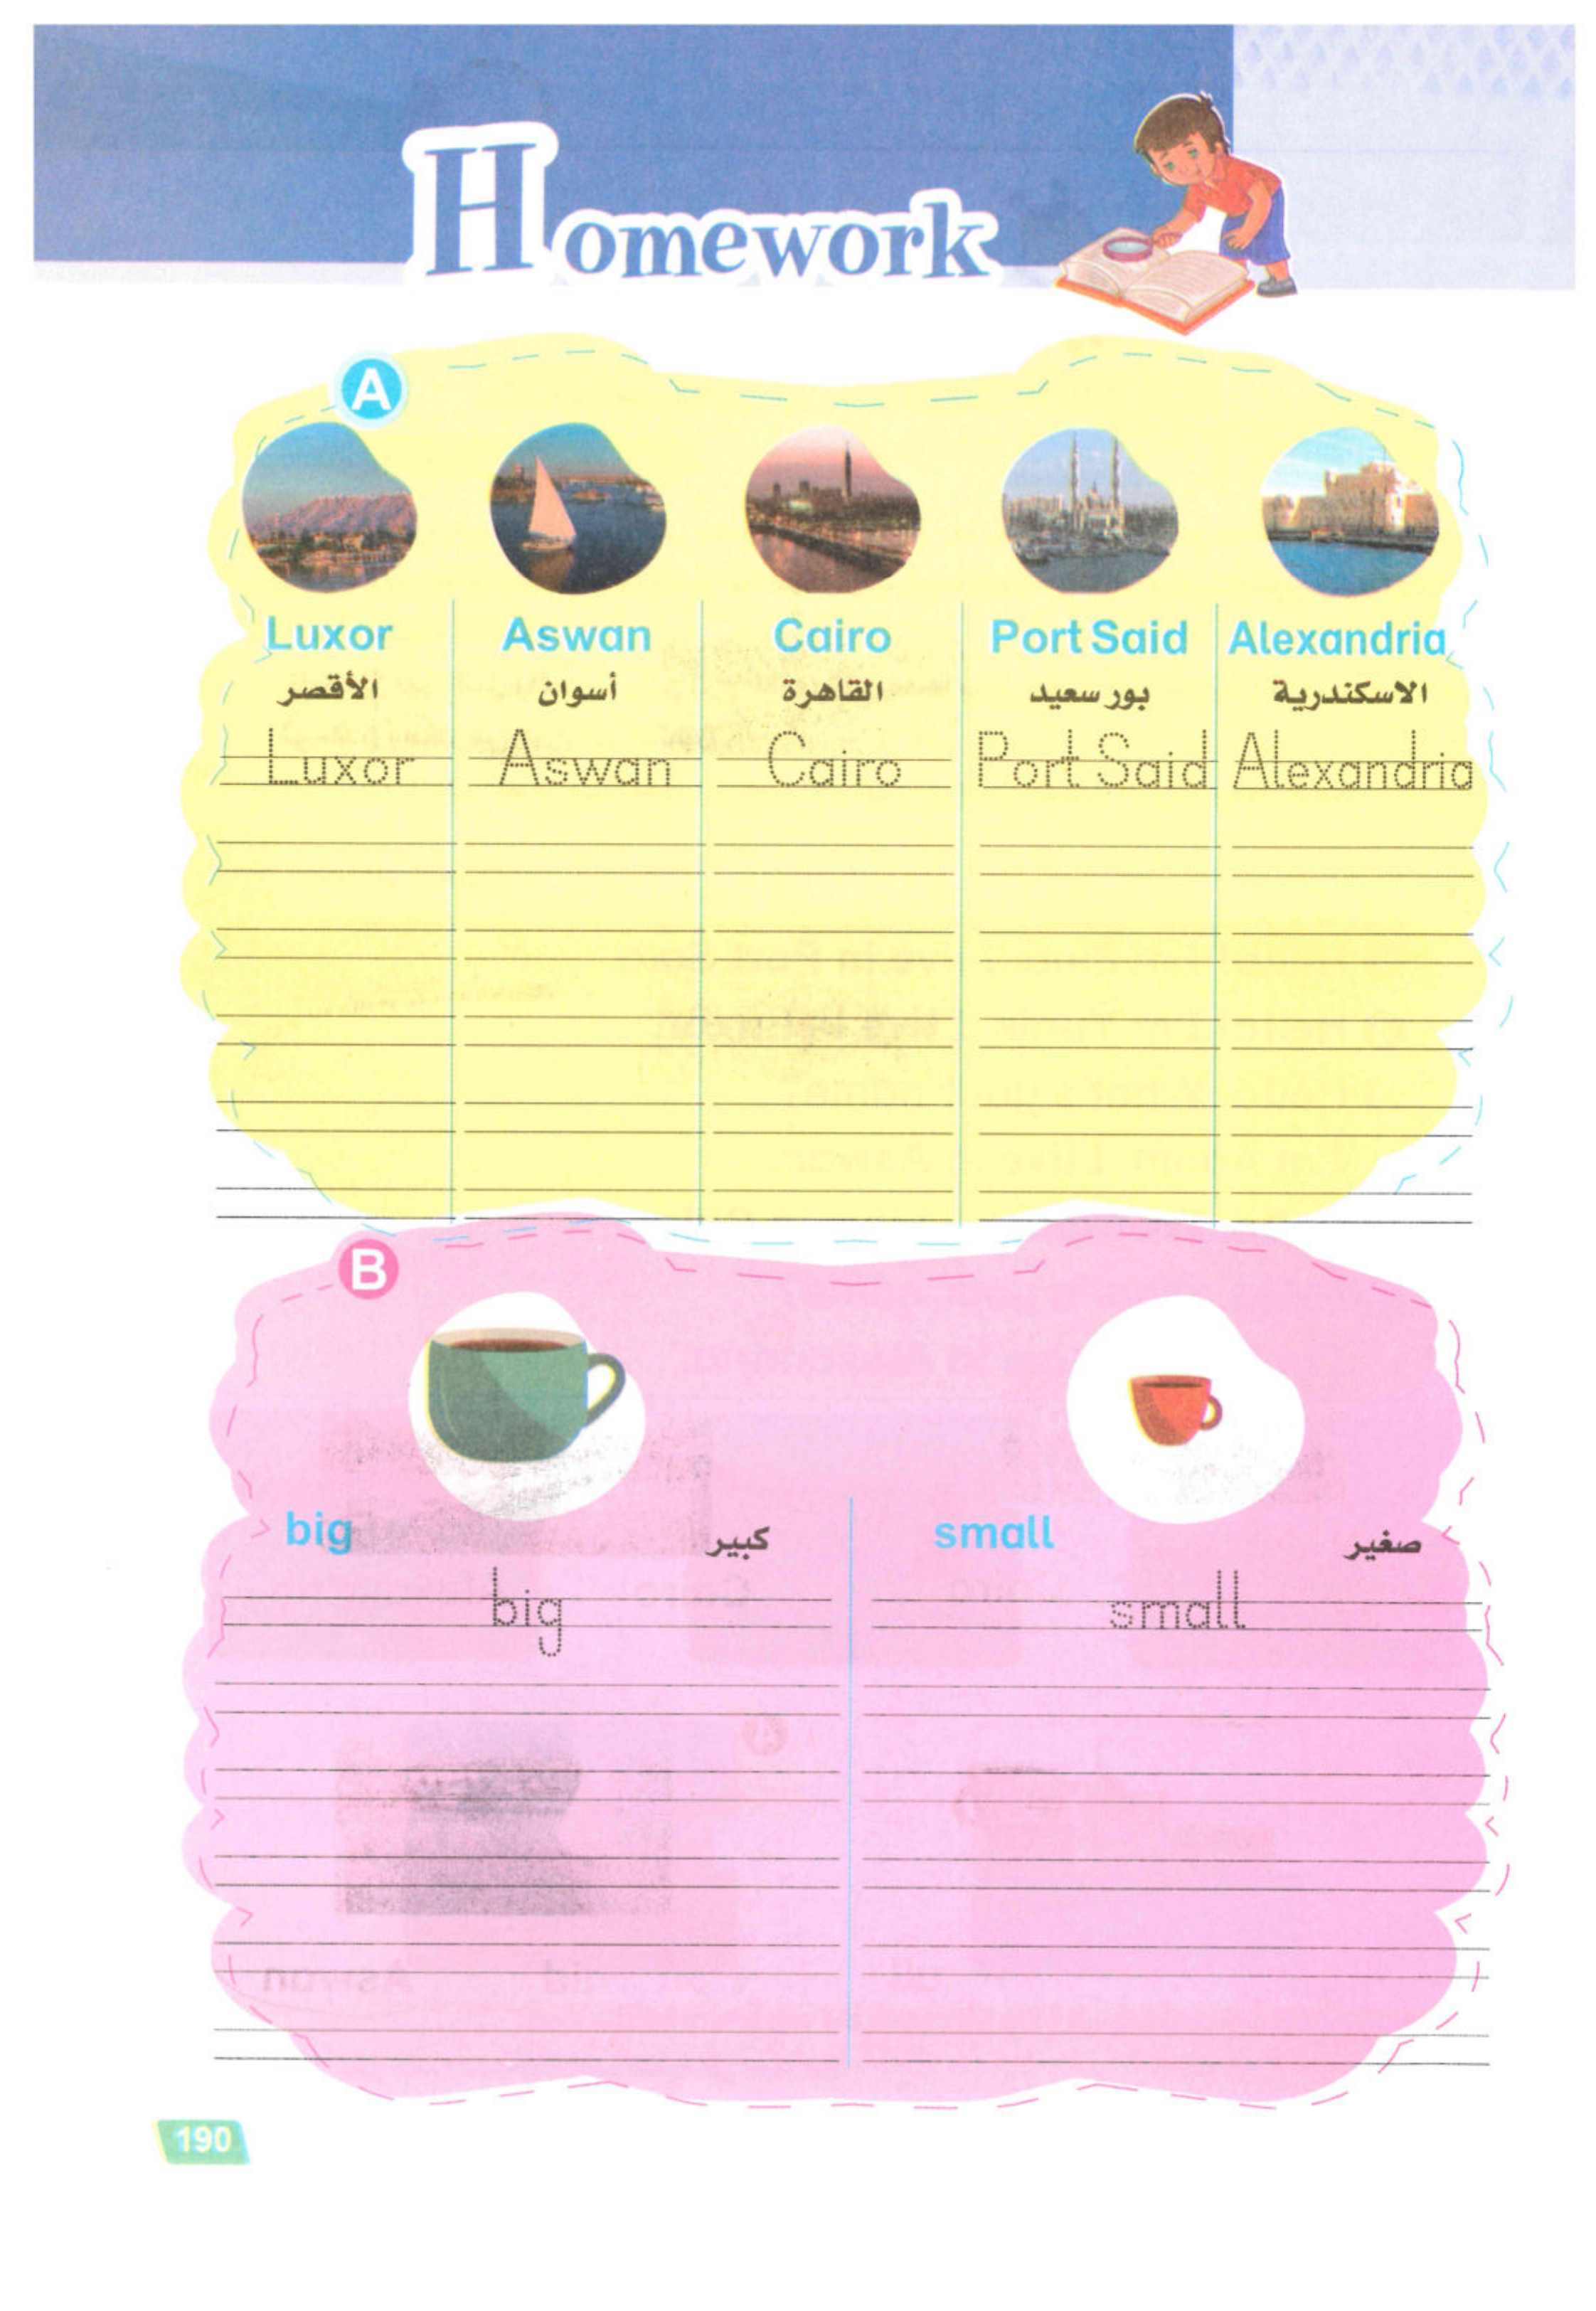 Homework
A
Luxor Aswan Cairo Port Said Alexandria
الأقصر أسوان القاهرة بور سعيد الاسكندرية
Luxor Aswan Cairo Port Said Alexandria
B
big كبير small صغير
big small
190